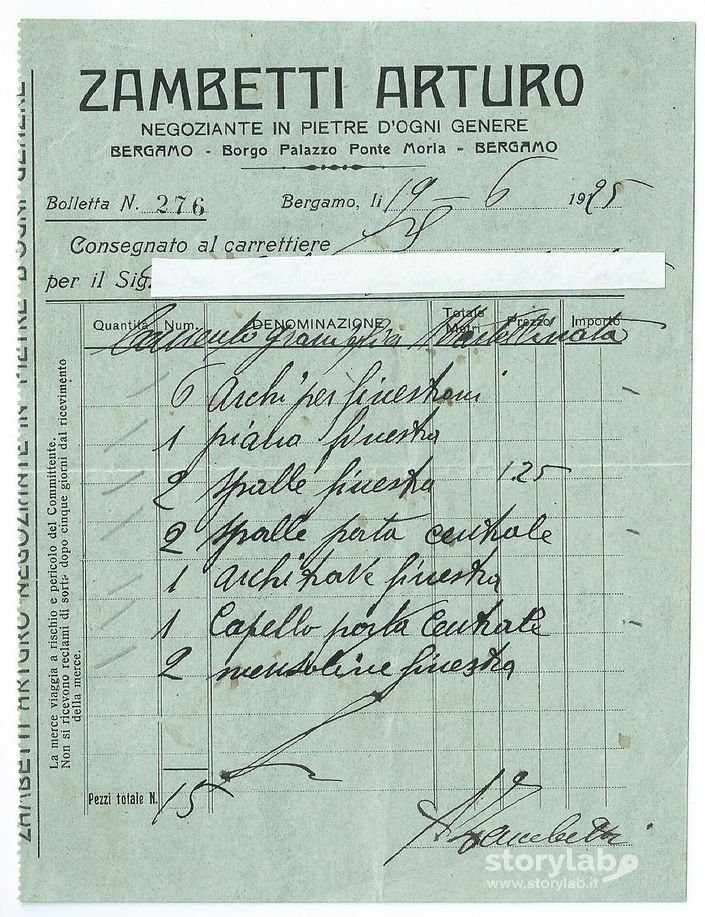 ZAMBETTI ARTURO
NEGOZIANTE IN PIETRE D'OGNI GENERE
BERGAMO - Borgo Palazzo Ponte Morla - BERGAMO
Bolletta N. 276 Bergamo, li 19 - 6 1925
Consegnato al carrettiere
per il Sig.
Quantità Num. DENOMINAZIONE Totale Metri Prezzo Importo
6 Archi per finestroni
1 piana finestra
2 spalle finestra 1.25
2 spalle porta centrale
1 architrave finestra
1 Capello porta Centrale
2 mensoline finestra
Pezzi totale N. 15
A Zambetti
La merce viaggia a rischio e pericolo del Committente.
Non si ricevono reclami di sorta dopo cinque giorni dal ricevimento
della merce.
ZAMBETTI ARTURO NEGOZIANTE IN PIETRE D'OGNI GENERE
storylab
www.storylab.it